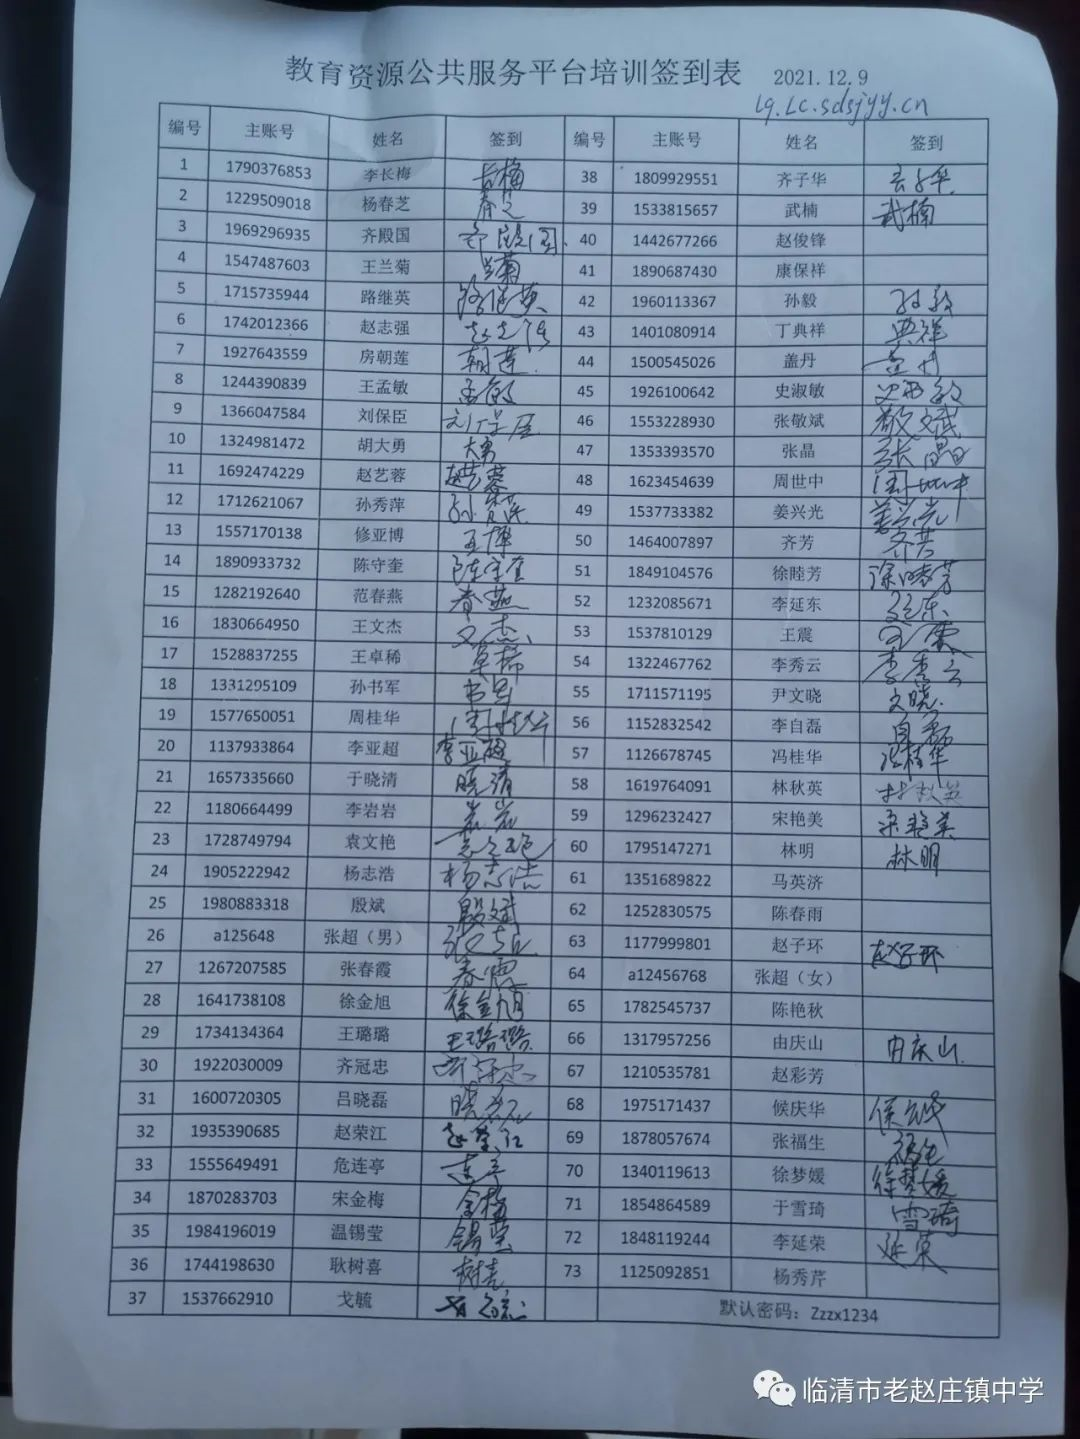 教育资源公共服务平台培训签到表 2021.12.9
lq.lc.sdsjyy.cn
编号 主账号 姓名 签到 编号 主账号 姓名 签到
1 1790376853 李长梅 长梅 38 1809929551 齐子华
2 1229509018 杨春芝 春芝 39 1533815657 武楠 武楠
3 1969296935 齐殿国 齐殿国 40 1442677266 赵俊锋
4 1547487603 王兰菊 兰菊 41 1890687430 康保祥
5 1715735944 路继英 路继英 42 1960113367 孙毅 孙毅
6 1742012366 赵志强 赵志强 43 1401080914 丁典祥 典祥
7 1927643559 房朝莲 朝莲 44 1500545026 盖丹 盖丹
8 1244390839 王孟敏 孟敏 45 1926100642 史淑敏 史淑敏
9 1366047584 刘保臣 刘保臣 46 1553228930 张敬斌 敬斌
10 1324981472 胡大勇 大勇 47 1353393570 张晶 张晶
11 1692474229 赵艺蓉 赵艺蓉 48 1623454639 周世中 周世中
12 1712621067 孙秀萍 孙秀萍 49 1537733382 姜兴光 姜兴光
13 1557170138 修亚博 亚博 50 1464007897 齐芳 齐芳
14 1890933732 陈守奎 陈守奎 51 1849104576 徐睦芳
15 1282192640 范春燕 春燕 52 1232085671 李延东
16 1830664950 王文杰 文杰 53 1537810129 王震 王震
17 1528837255 王卓稀 卓稀 54 1322467762 李秀云 李秀云
18 1331295109 孙书军 书军 55 1711571195 尹文晓 文晓
19 1577650051 周桂华 周桂华 56 1152832542 李自磊 自磊
20 1137933864 李亚超 李亚超 57 1126678745 冯桂华 冯桂华
21 1657335660 于晓清 晓清 58 1619764091 林秋英 林秋英
22 1180664499 李岩岩 岩岩 59 1296232427 宋艳美 宋艳美
23 1728749794 袁文艳 袁文艳 60 1795147271 林明 林明
24 1905222942 杨志浩 杨志浩 61 1351689822 马英济
25 1980883318 殷斌 殷斌 62 1252830575 陈春雨
26 a125648 张超（男） 张超 63 1177999801 赵子环 赵子环
27 1267207585 张春霞 春霞 64 a12456768 张超（女）
28 1641738108 徐金旭 徐金旭 65 1782545737 陈艳秋
29 1734134364 王璐璐 王璐璐 66 1317957256 由庆山 由庆山
30 1922030009 齐冠忠 齐冠忠 67 1210535781 赵彩芳
31 1600720305 吕晓磊 晓磊 68 1975171437 候庆华
32 1935390685 赵荣江 赵荣江 69 1878057674 张福生 福生
33 1555649491 危连亭 连亭 70 1340119613 徐梦媛 徐梦媛
34 1870283703 宋金梅 金梅 71 1854864589 于雪琦 雪琦
35 1984196019 温锡莹 锡莹 72 1848119244 李延荣 延荣
36 1744198630 耿树喜 树喜 73 1125092851 杨秀芹
37 1537662910 戈毓 默认密码：Zzzx1234
临清市老赵庄镇中学